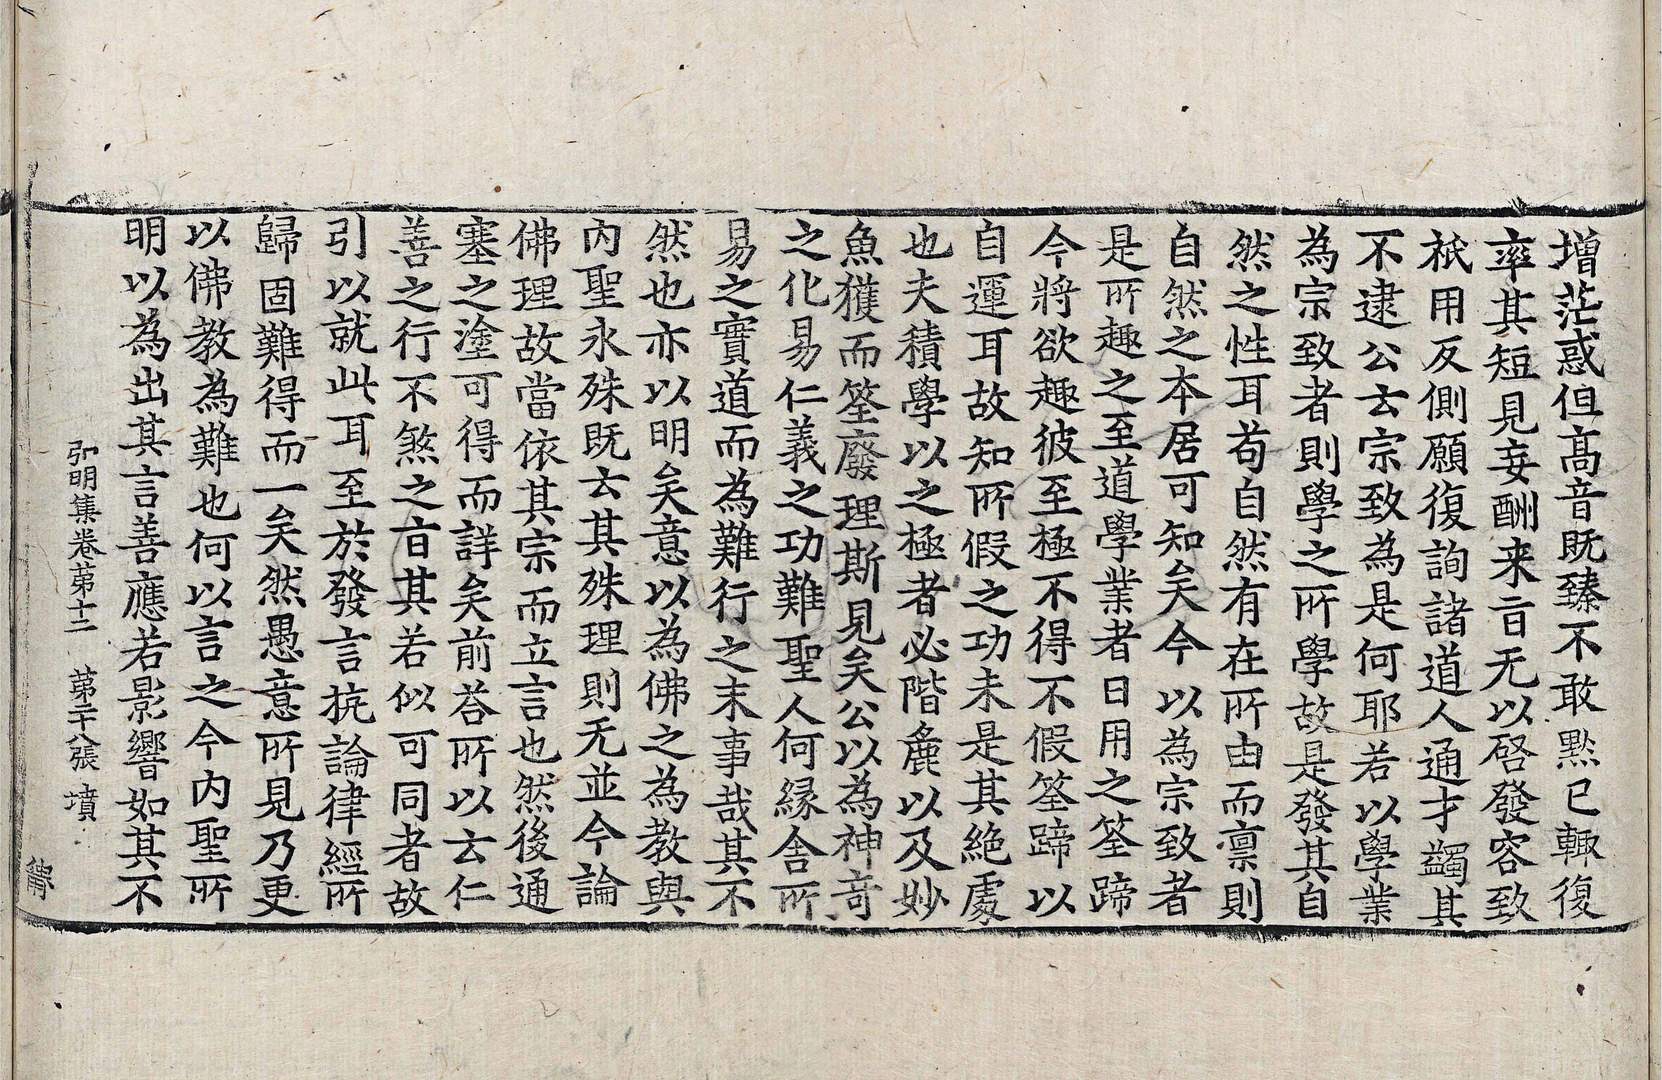 增茫惑但高音既臻不敢黙已輙復
率其短見妄酬来㫖无以啓發容致
祇用反側願復詢諸道人通才蠲其
不逮公去宗致為是何耶若以學業
為宗致者則學之所學故是發其自
然之性耳苟自然有在所由而禀則
自然之本居可知矣今以為宗致者
是所趣之至道學業者日用之筌蹄
今將欲趣彼至極不得不假筌蹄以
自運耳故知所假之功未是其絶處
也夫積學以之極者必階麁以及妙
魚獲而筌廢理斯見矣公以為神竒
之化易仁義之功難聖人何緣舍所
易之實道而為難行之末事哉其不
然也亦以明矣意以為佛之為教與
内聖永殊既云其殊理則无並今論
佛理故當依其宗而立言也然後通
塞之塗可得而詳矣前荅所以云仁
善之行不煞之㫖其若似可同者故
引以就此耳至於發言抗論律經所
歸固難得而一矣然愚意所見乃更
以佛教為難也何以言之今内聖所
明以為出其言善應若影響如其不
弘明集卷第十二 第二十八張 墳